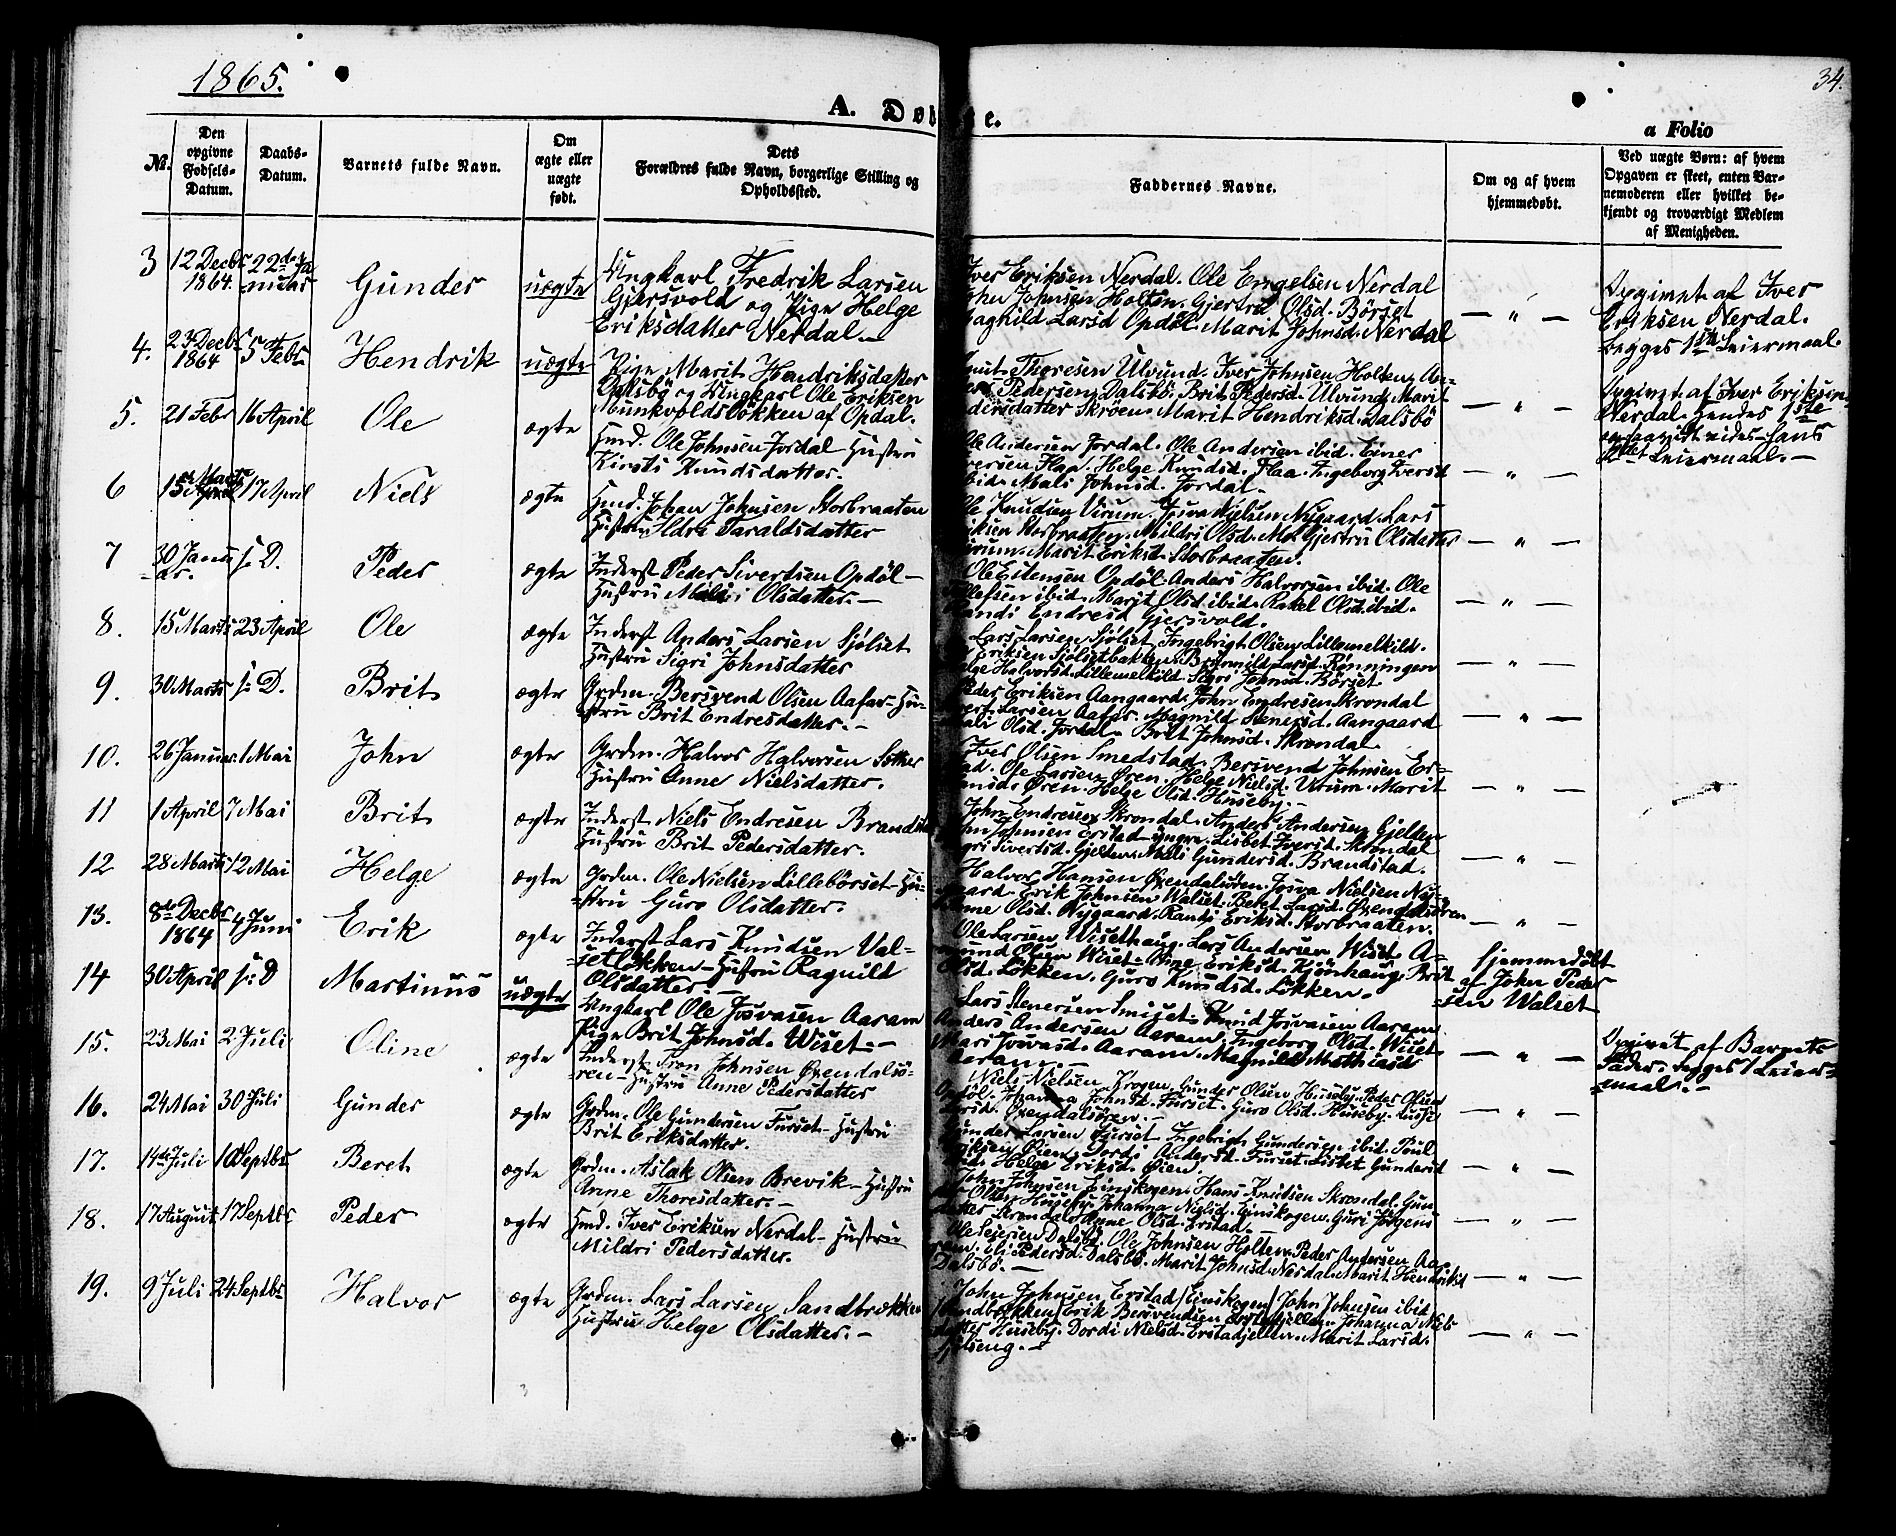 1865.
34.
A. Døb e.
a Folio
No.
Den opgivne Fødsels-Datum.
Daabs-Datum.
Barnets fulde Navn.
Om ægte eller uægte født.
Dets Forældres fulde Navn, borgerlige Stilling og Opholdssted.
Faddernes Navne.
Om og af hvem hjemmedøbt.
Ved uægte Børn: af hvem Opgaven er skeet, enten Barnemoderen eller hvilket bekjendt og troværdigt Medlem af Menigheden.
3
12 Decbr 1864.
22de Januar
Gunder
uægte
Ungkarl Fredrik Larsen
Gjersvold og Pige Helge
Eriksdatter Nerdal.
Iver Eriksen Nerdal. Ole Engelsen Nerdal
John Johnsen Holten. Gjertru Olsd. Börset
Magnild Larsd Opdøl. Marit Johnsd. Nerdal
Opgivet af Iver
Eriksen Nerdal.
begges 1ste Leiermaal.
4.
23 Decbr 1864
5 Febr
Hendrik
uægte
Pige Marit Hendriksdatter
Dalsbö og Ungkarl Ole Eriksen
Munkvoldslökken af Opdal.
Thoresen Ulvund. Iver Johnsen Holten, An-
Pedersen Dalsbö. Brit Pedersd. Ulvund, Marit
Skrøen. Marit Hendriksd. Dalsbö
Opgivet af Iver Eriksen
Nerdal. Hendes 1ste
Hans
Leiermaal.
5.
21 Febr
16 April
Ole
ægte
Hmd. Ole Johnsen Jordal Hustru
Kirsti Knudsdatter.
Ole Andersen Jordal. Ole Andersen ibid. Einer
Iversen Flaa. Helge Knudsd. Flaa. Ingeborg Iversd
ibid. Mali Johnsd. Jordal.
6
15 Marts
17 April
Niels
ægte
Hmd. Johan Johnsen Storbraaten
Hustru Ildri Taraldsdatter
Ole Knudsen Virum. Josva Nielsen Nygaard. Lars
Eriksen Storbraaten. Mildri Olsd. Mo. Gjertru Olsdatter
Virum. Marit Eriksd. Storbraaten.
7
30 Januar.
s: D.
Peder
ægte
Inderst Peder Sivertsen Opdøl
Hustru Mali Olsdatter.
Ole Estensen Opdøl. Anders Halvorsen ibid. Ole
ibid. Marit Olsd. ibid. Rakel Olsd. ibid.
Randi Endresd Gjersvold.
8.
15 Marts
23 April
Ole
ægte
Inderst Anders Larsen Sjølset
Hustru Sigri Johnsdatter
Lars Larsen Sjølset. Ingebrigt Olsen Lillemelkild.
Eriksen Sjølsetbakken. Larsd. Rønningen
Helge Halvorsd. Lillemelkild. Sigri Johnsd. Børset
9.
30 Marts
s: D.
Brit
ægte
Grdm. Bersvend Olsen Aafar Hu-
stru Brit Endresdatter.
Peder Eriksen Aangaard. John Endresen Skrondal
Larsen Aafar. Magnild Stenersd. Aangaard
Mali Olsd. Jordal. Brit Johnsd. Skrondal.
10.
26 Januar.
1 Mai
John
ægte
Grdm. Halvor Halvorsen Sætter
Hustru Anne Nielsdatter.
Iver Olsen Smedstad. Bersvend Johnsen Er-
stad. Ole Larsen Øren. Helge Nielsd. Virum. Marit
Øren. Helge Olsd. Huseby.
11
1 April
7 Mai
Brit
ægte
Inderst Niels Endresen Brandstad
Hustru Brit Pedersdatter.
John Endresen Skrondal. Anders Andersen Gjelten
John Johnsen Erstad yngre. Lisbet Iversd. Skrondal
Sigri Sivertsd. Gjelten. Mali Gundersd. Brandstad.
12
28 Marts
12 Mai
Helge
ægte
Grdm. Ole Nielsen Lillebörset. Hu-
stru Guro Olsdatter.
Halvor Hansen Øxendalsøren. Josva Nielsen Ny-
gaard. Erik Johnsen Walset. Beret Larsd. Øxendalsøren
Anne Olsd. Nygaard. Randi Eriksd. Storbraaten.
13.
8de Decbr 1864
4 Juni
Erik
ægte
Inderst Lars Knudsen Val-
setløkken Hustru Ragnild
Olsdatter
Ole Larsen Wisethaug. Lars Andersen Wiset. A-
mund Olsen Wiset. Ane Eriksd. Kjønhaug. Brit
Olsd. Løkken. Guro Knudsd. Løkken.
Hjemmedøbt
af John Peder
sen Walset
14
30 April
s: D
Martinus
uægte
Ungkarl Ole Josvasen Aaram
Pige Brit Johnsd. Wiset.
Lars Stenersen Smiset. Knud Josvasen Aaram
Anders Andersen Aaram. Ingeborg Olsd. Wiset.
Mari Josvasd. Aaram. Magnild Mathiasd
Aaram.
Opgivet af Barnets
Fader. begges 1 Leier-
maal.
15.
23 Mai
2 Juli
Oline
ægte
Inderst Tron Johnsen Øxendalsø-
ren Hustru Anne Pedersdatter
Niels Nielsen Krogen. Gunder Olsen Huseby. Peder Olsen
Opdøl. Johanna Johnsd. Furset. Guro Olsd. Huseby.
Øxendalsøren.
16.
24 Mai
30 Juli
Gunder
ægte
Grdm. Ole Gundersen Furset Hustru
Brit Eriksdatter.
Gunder Larsen Furset. Ingebrigt Gundersen ibid. Poul
Øien. Dordi Andersd. Furset. Lisbet Gundersd
Helge Eriksd. Øien.
17.
14de Juli
10 Septbr
Beret
ægte
Grdm. Aslak Olsen Brevik Hustru
Anne Thoresdatter.
John Johnsen Einskogen. Hans Knudsen Skrondal. Gun
der Olsen Huseby. Johanna Nielsd. Einskogen. Guri Jörgens
datter Skrondal. Anne Olsd. Erstad.
18.
17 August
17 Septbr
Peder
ægte
Hmd. Iver Eriksen Nerdal Hustru
Mildri Pedersdatter.
Ole Dalsbö. Ole Johnsen Holten. Peder Andersen Aa-
ram. Eli Pedersd. Dalsbö. Marit Johnsd. Nerdal. Marit Hendriksd
Dalsbö.
19.
9 Juli
24 Septbr
Halvor
ægte
Grdm. Lars Larsen Sandbrækken
Hustru Helge Olsdatter.
John Johnsen Erstad /Einskogen/ John Johnsen ibid
/Sandbrækken/ Erik Bersvendsen Erstadjellen. Johanna Niels
datter Huseby. Dordi Nielsd. Erstadjellen. Marit Larsd.